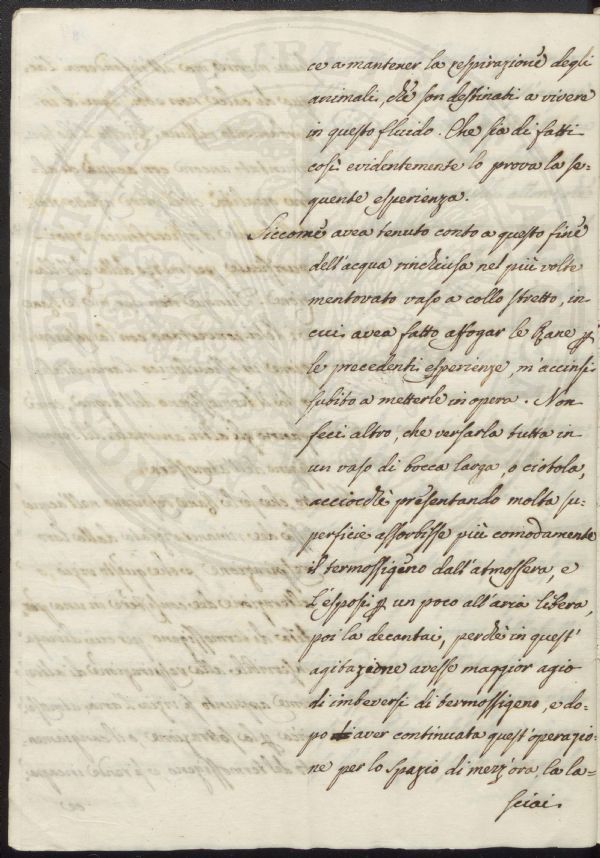 ce a mantener la respirazione degli
animali, che son destinati a vivere
in questo fluido. Che sia di fatti
così evidentemente lo prova la se-
quente esperienza.
Siccome avea tenuto conto a questo fine
dell'acqua rinchiusa nel più volte
mentovato vaso a collo stretto, in
cui avea fatto affogar le Rane p
le precedenti esperienze, m'accinsi
subito a metterle in opera. Non
feci altro, che versarla tutta in
un vaso di bocca larga, o ciotola,
acciocchè presentando molta su-
perficie assorbisse più comodamente
il termossigeno dall'atmosfera, e
l'esposi p un poco all'aria libera,
poi la decantai, perchè in quest'
agitazione avesse maggior agio
di imbeversi di termossigeno, e do-
po aver continuata quest'operazio-
ne per lo spazio di mezz'ora, la la-
sciai